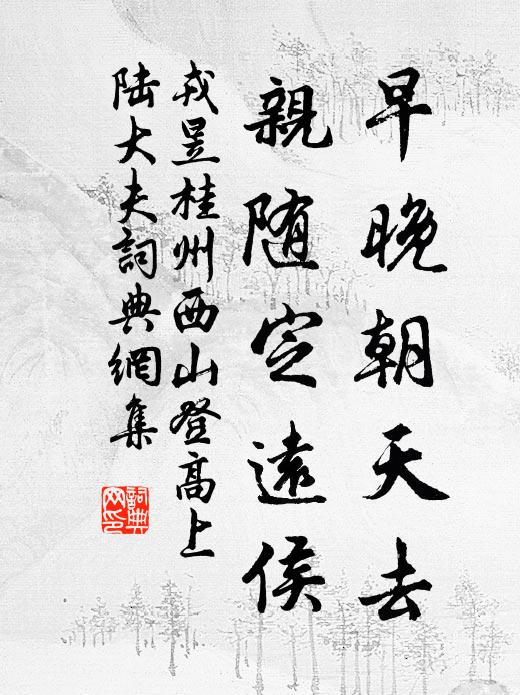 早晚朝天去
親随定遠侯
戎昱桂州西山登高上
陸大夫詞典網集
詞典
网印